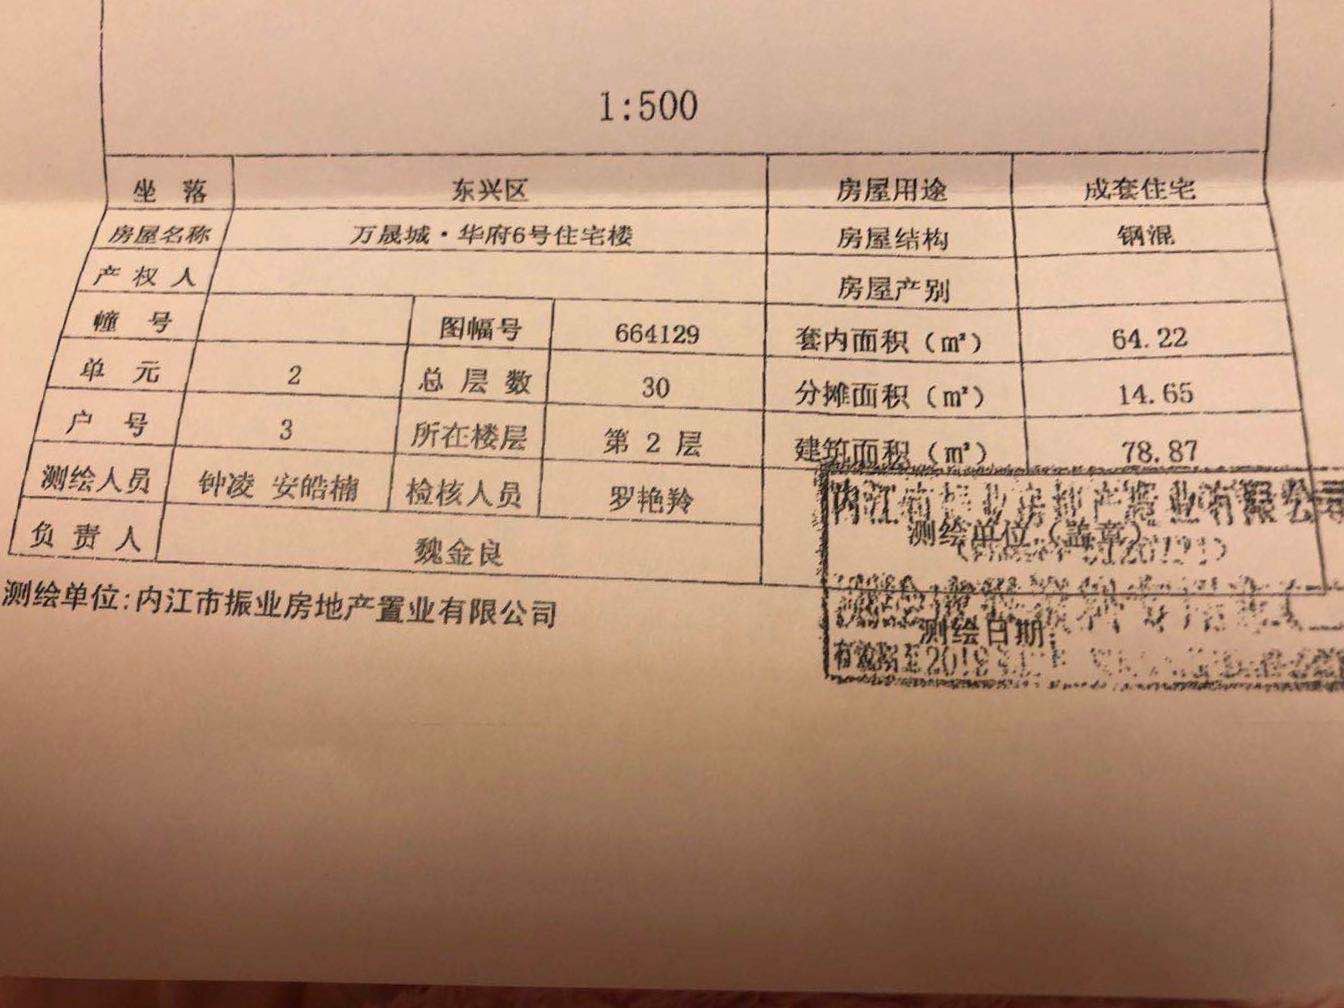 1:500
坐 落 东兴区 房屋用途 成套住宅
房屋名称 万晟城·华府6号住宅楼 房屋结构 钢混
产 权 人 房屋产别
幢 号 图幅号 664129 套内面积（㎡） 64.22
单 元 2 总 层 数 30 分摊面积（㎡） 14.65
户 号 3 所在楼层 第 2 层 建筑面积（㎡） 78.87
测绘人员 钟凌 安皓楠 检核人员 罗艳羚
测绘单位（盖章）
负 责 人 魏金良
测绘单位:内江市振业房地产置业有限公司
测绘日期:
有效期至2018